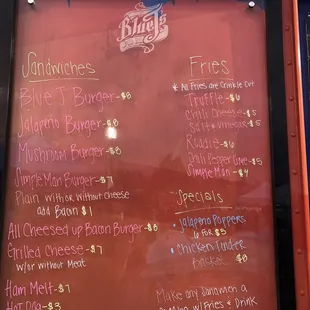 Blue J's
Sandwiches
Blue J Burger - $8
Jalapeño Burger - $8
Mushroom Burger - $8
Simple Man Burger - $7
Plain with or without Cheese
add Bacon $1
All Cheesed up Bacon Burger - $8
Grilled Cheese - $7
w/or without Meat
Ham Melt - $7
Hot Dog - $3
Fries
* All Fries are Crinkle Cut
Truffle - $6
Chili Cheese - $5
Salt & Vinegar - $5
Roadie - $6
Chili Pepper Lime - $5
Simple Man - $4
Specials
Jalapeño Poppers
6 For $5
Chicken Tender
Basket
Make any Sandwich a
w/ Fries & Drink